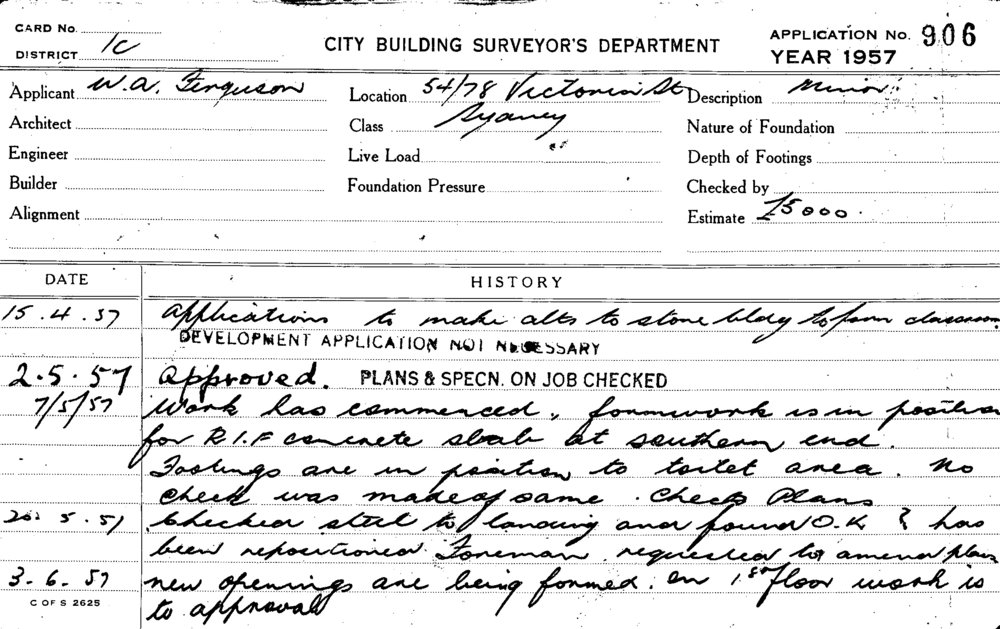 CARD No.
DISTRICT 1C
CITY BUILDING SURVEYOR'S DEPARTMENT
APPLICATION No. 906
YEAR 1957
Applicant W.A. Ferguson
Location 54/78 Victoria St
Sydney
Description Minor
Architect
Class
Nature of Foundation
Engineer
Live Load
Depth of Footings
Builder
Foundation Pressure
Checked by
Alignment
Estimate £5000
DATE
HISTORY
15.4.57 Applications to make alts to stone bldg to form classroom.
DEVELOPMENT APPLICATION NOT NECESSARY
2.5.57 Approved. PLANS & SPECN. ON JOB CHECKED
7/5/57 Work has commenced, formwork is in position
for R.I.F concrete slab at southern end.
Footings are in position to toilet area. No
check was made of same. Check Plans
20.5.57 Checked steel to landing and found O.K & has
been repositioned. Foreman requested to amend plans
3.6.57 new openings are being formed. on 1st floor work is
to approval
C OF S 2625